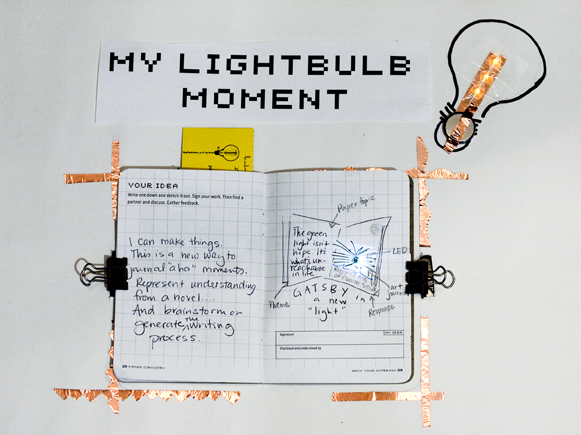 MY LIGHTBULB
MOMENT
YOUR IDEA
Write one down and sketch it out. Sign your work. Then find a
partner and discuss. Gather feedback.
I can make things.
This is a new way to
journal "aha" moments.
Represent understanding
from a novel....
And brainstorm or
generate the writing
process.
20 PAPER CIRCUITRY
Paper topic
The green
light isn't
hope. It's
what's un-
reachable
in life.
LED
Theme
art
GATSBY in
a new
"light"
Response
Signature
MY IDEA
Disclosed and understood by
HACK YOUR NOTEBOOK